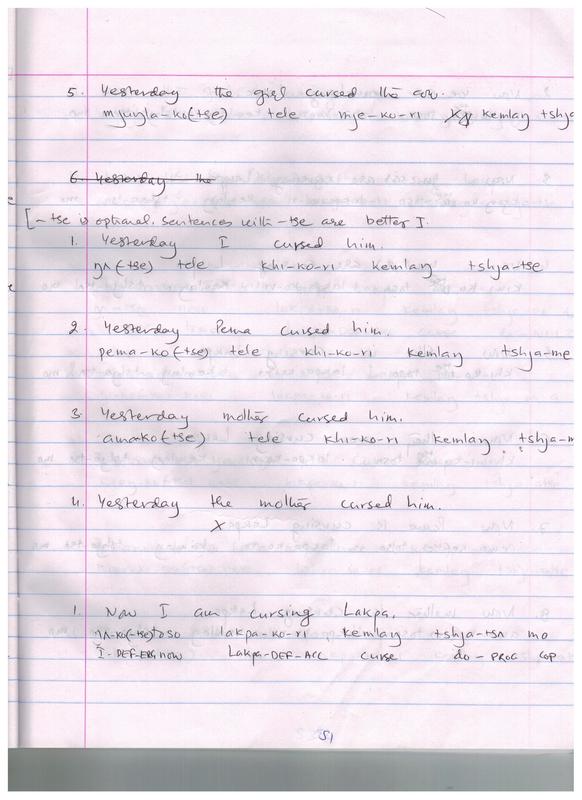 5. Yesterday the girl cursed the cow.
mjuŋla-ko(-tse) tele mje-ko-ri kemlaŋ tshja
6. Yesterday the
[-tse is optional. Sentences with -tse are better].
1. Yesterday I cursed him.
ŋʌ(-tse) tele khi-ko-ri kemlaŋ tshja-tse
2. Yesterday Pema cursed him.
pema-ko(-tse) tele khi-ko-ri kemlaŋ tshja-me
3. Yesterday mother cursed him.
ama-ko(-tse) tele khi-ko-ri kemlaŋ tshja-m
4. Yesterday the mother cursed him.
X
1. Now I am cursing Lakpa.
ŋʌ-ko(-tse) lakpa-ko-ri kemlaŋ tshja-tsʌ mo
I-DEF-ERG now Lakpa-DEF-ACC curse do-PROG COP
51